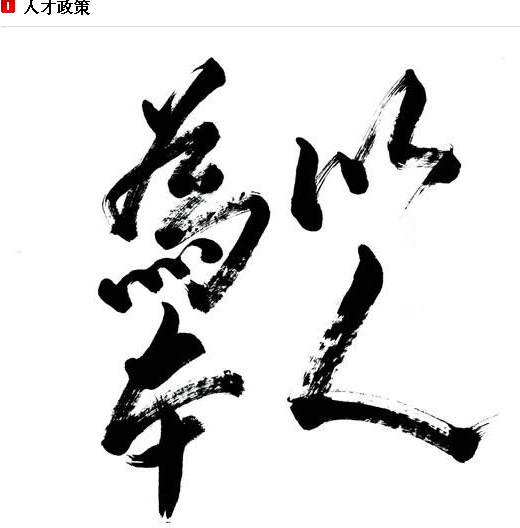 人才政策
以人
為本